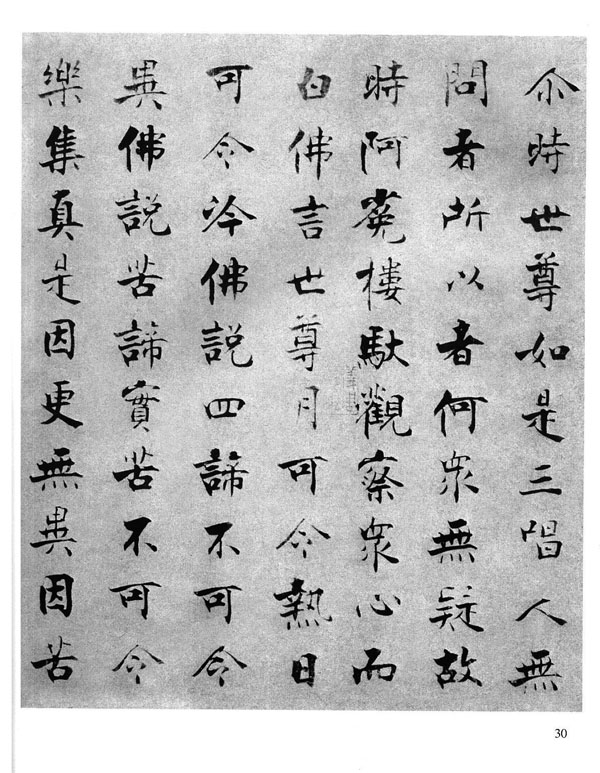 尒時世尊如是三唱人無
問者所以者何衆無疑故
時阿㝹樓馱觀察衆心而
白佛言世尊月可令熱日
可令冷佛説四諦不可令
異佛説苦諦實苦不可令
樂集真是因更無異因苦
30